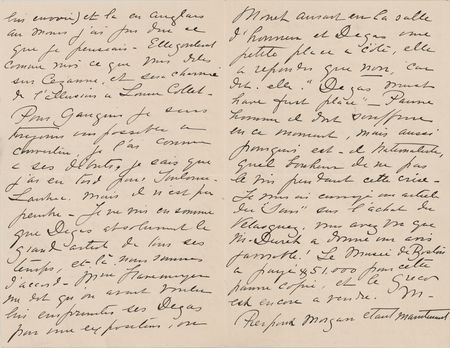 lui envoie) et là en anglais
au moins j'ai pu dire ce
que je pensais. Elle gardait
comme moi ce que dites
sur Cezanne, et sera charmée
de l'allusion à Collet.
Pour Gauguin je suis
toujours impossible a
convertir, je l'ai connu
a ses débuts, je sais que
j'ai eu tort pour Toulouse-
Lautrec, mais il n'est pas
peintre. Je ne vois en somme
que Degas absolument le
grand artist de tous ses
temps, et là nous sommes
d'accord. Mme Havemeyer
me dit que on avait voulu
lui emprunter ses Degas
pour une exposition, ou
Monet aurait eu la salle
d'honneur et Degas une
petite place a côté, elle
a repondu que non, car
dit-elle "Degas must
have first place". Pauvre
homme il doit souffrir
en ce moment, mais aussi
pourquoi est-il
quel bonheur de ne pas
le voir pendant cette crise.
Je vous ai envoyé un article
du "Sun" sur l'achat du
Velasquez, vous avez vu que
M. Duret a donné un avis
favorable! Le Musée de Boston
a payé $51,000 pour cette
pauvre copie, et le Greco
est encore a vendre. M-
Pierpont Morgan etant maintenant